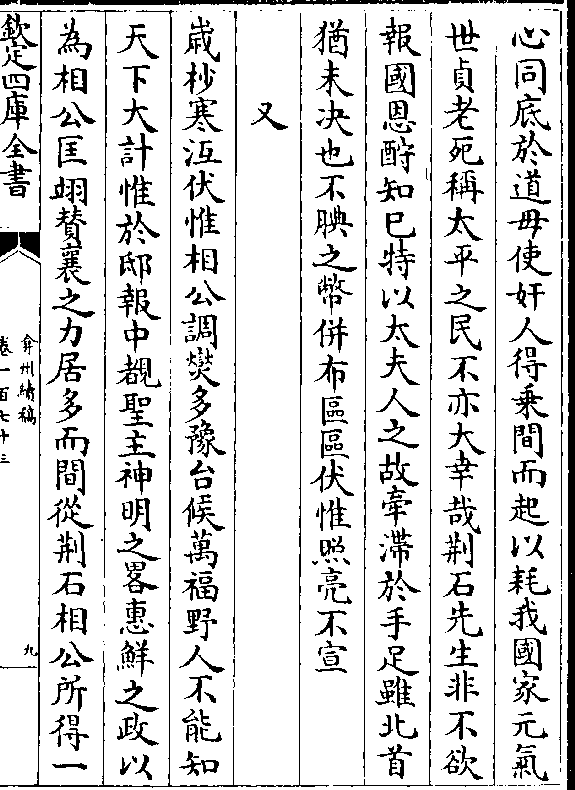 心同底於道毋使奸人得乗間而起以耗我國家元氣
世貞老死稱太平之民不亦大幸哉荆石先生非不欲
報國恩酧知已特以太夫人之故牽滯於手足雖北首
猶未决也不腆之幣併布區區伏惟照亮不宣
又
嵗杪寒沍伏惟相公調爕多豫台候萬福野人不能知
天下大計惟於邸報中覩聖主神明之畧惠鮮之政以
為相公匡翊賛襄之力居多而間從荆石相公所得一
欽定四庫全書
弇州續稿
卷一百七十三
九